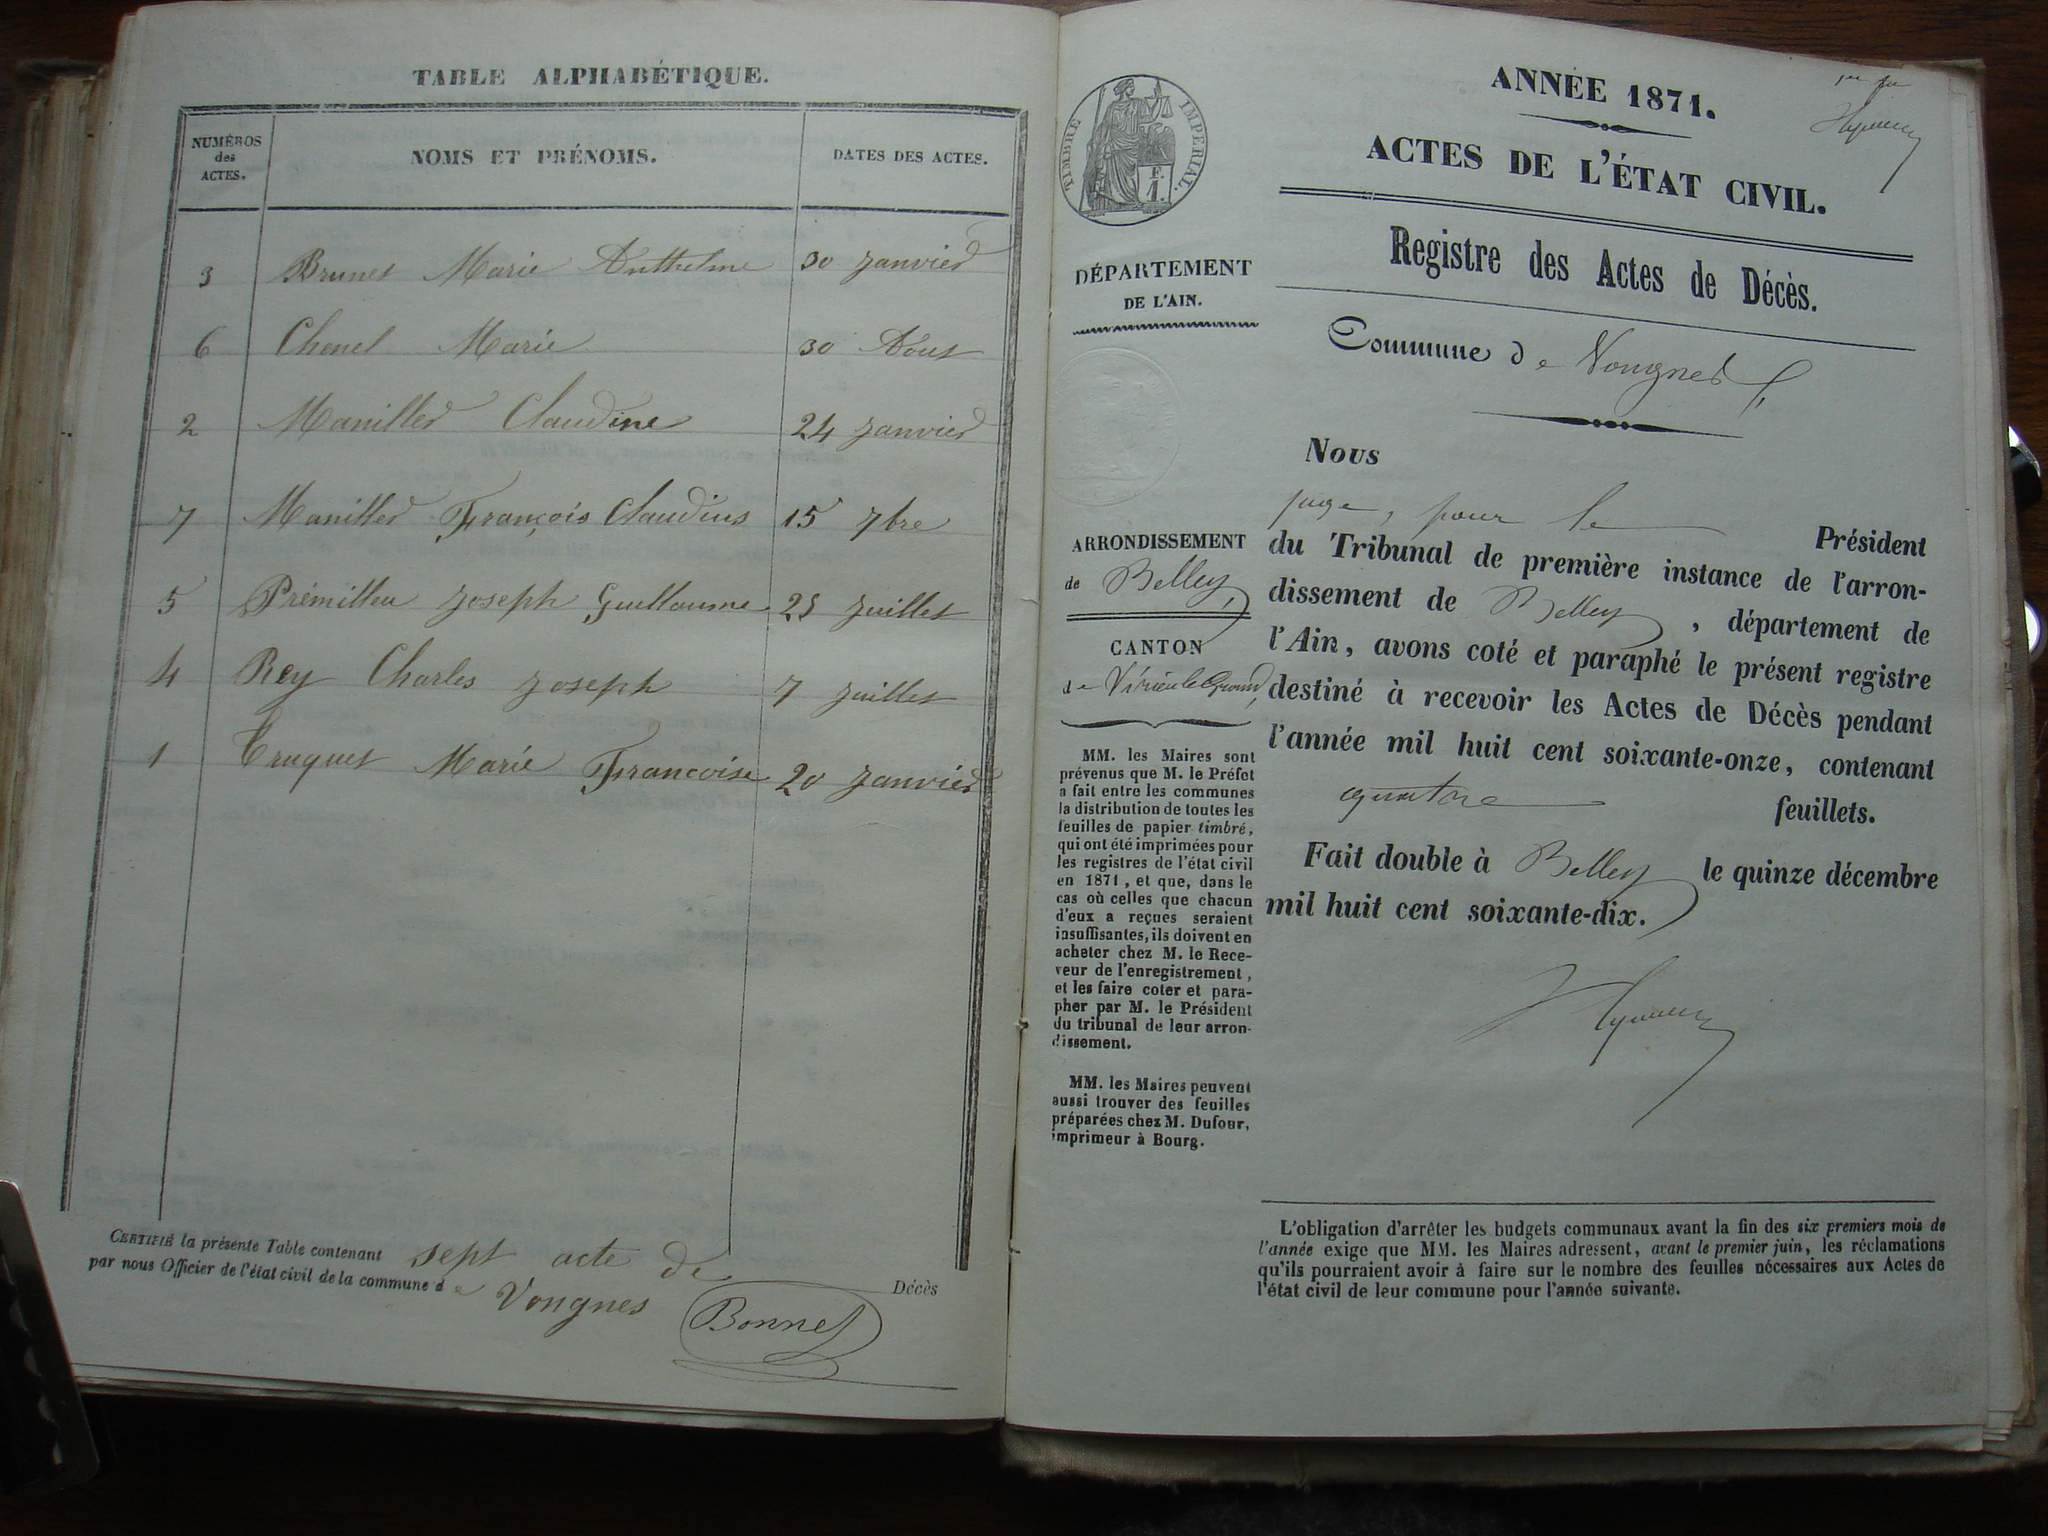 TABLE ALPHABÉTIQUE.
NUMÉROS des ACTES. NOMS ET PRÉNOMS. DATES DES ACTES.
3 Brunet Marie Anthelme 30 Janvier
6 Chenel Marie 30 Aout
2 Maniller Claudine 24 Janvier
7 Maniller François Claudius 15 7bre
5 Prémilleu Joseph Guillaume 25 Juillet
4 Rey Charles Joseph 7 Juillet
1 Truquet Marie Francoise 20 Janvier
CERTIFIÉ la présente Table contenant sept acte de Décès
par nous Officier de l'état civil de la commune de Vongnes
Bonnet
TIMBRE IMPÉRIAL.
F.
1.
DÉPARTEMENT
DE L'AIN.
ARRONDISSEMENT
de Belley,
CANTON
de Virieu le Grand,
MM. les Maires sont
prévenus que M. le Préfet
a fait entre les communes
la distribution de toutes les
feuilles de papier timbré,
qui ont été imprimées pour
les registres de l'état civil
en 1871, et que, dans le
cas où celles que chacun
d'eux a reçues seraient
insuffisantes, ils doivent en
acheter chez M. le Rece-
veur de l'enregistrement,
et les faire coter et para-
pher par M. le Président
du tribunal de leur arron-
dissement.
MM. les Maires peuvent
aussi trouver des feuilles
préparées chez M. Dufour,
imprimeur à Bourg.
ANNÉE 1871.
ACTES DE L'ÉTAT CIVIL.
Registre des Actes de Décès.
Commune de Vongnes
Nous
juge, pour le Président
du Tribunal de première instance de l'arron-
dissement de Belley, département de
l'Ain, avons coté et paraphé le présent registre
destiné à recevoir les Actes de Décès pendant
l'année mil huit cent soixante-onze, contenant
quatorze feuillets.
Fait double à Belley le quinze décembre
mil huit cent soixante-dix.
L'obligation d'arrêter les budgets communaux avant la fin des six premiers mois de
l'année exige que MM. les Maires adressent, avant le premier juin, les réclamations
qu'ils pourraient avoir à faire sur le nombre des feuilles nécessaires aux Actes de
l'état civil de leur commune pour l'année suivante.